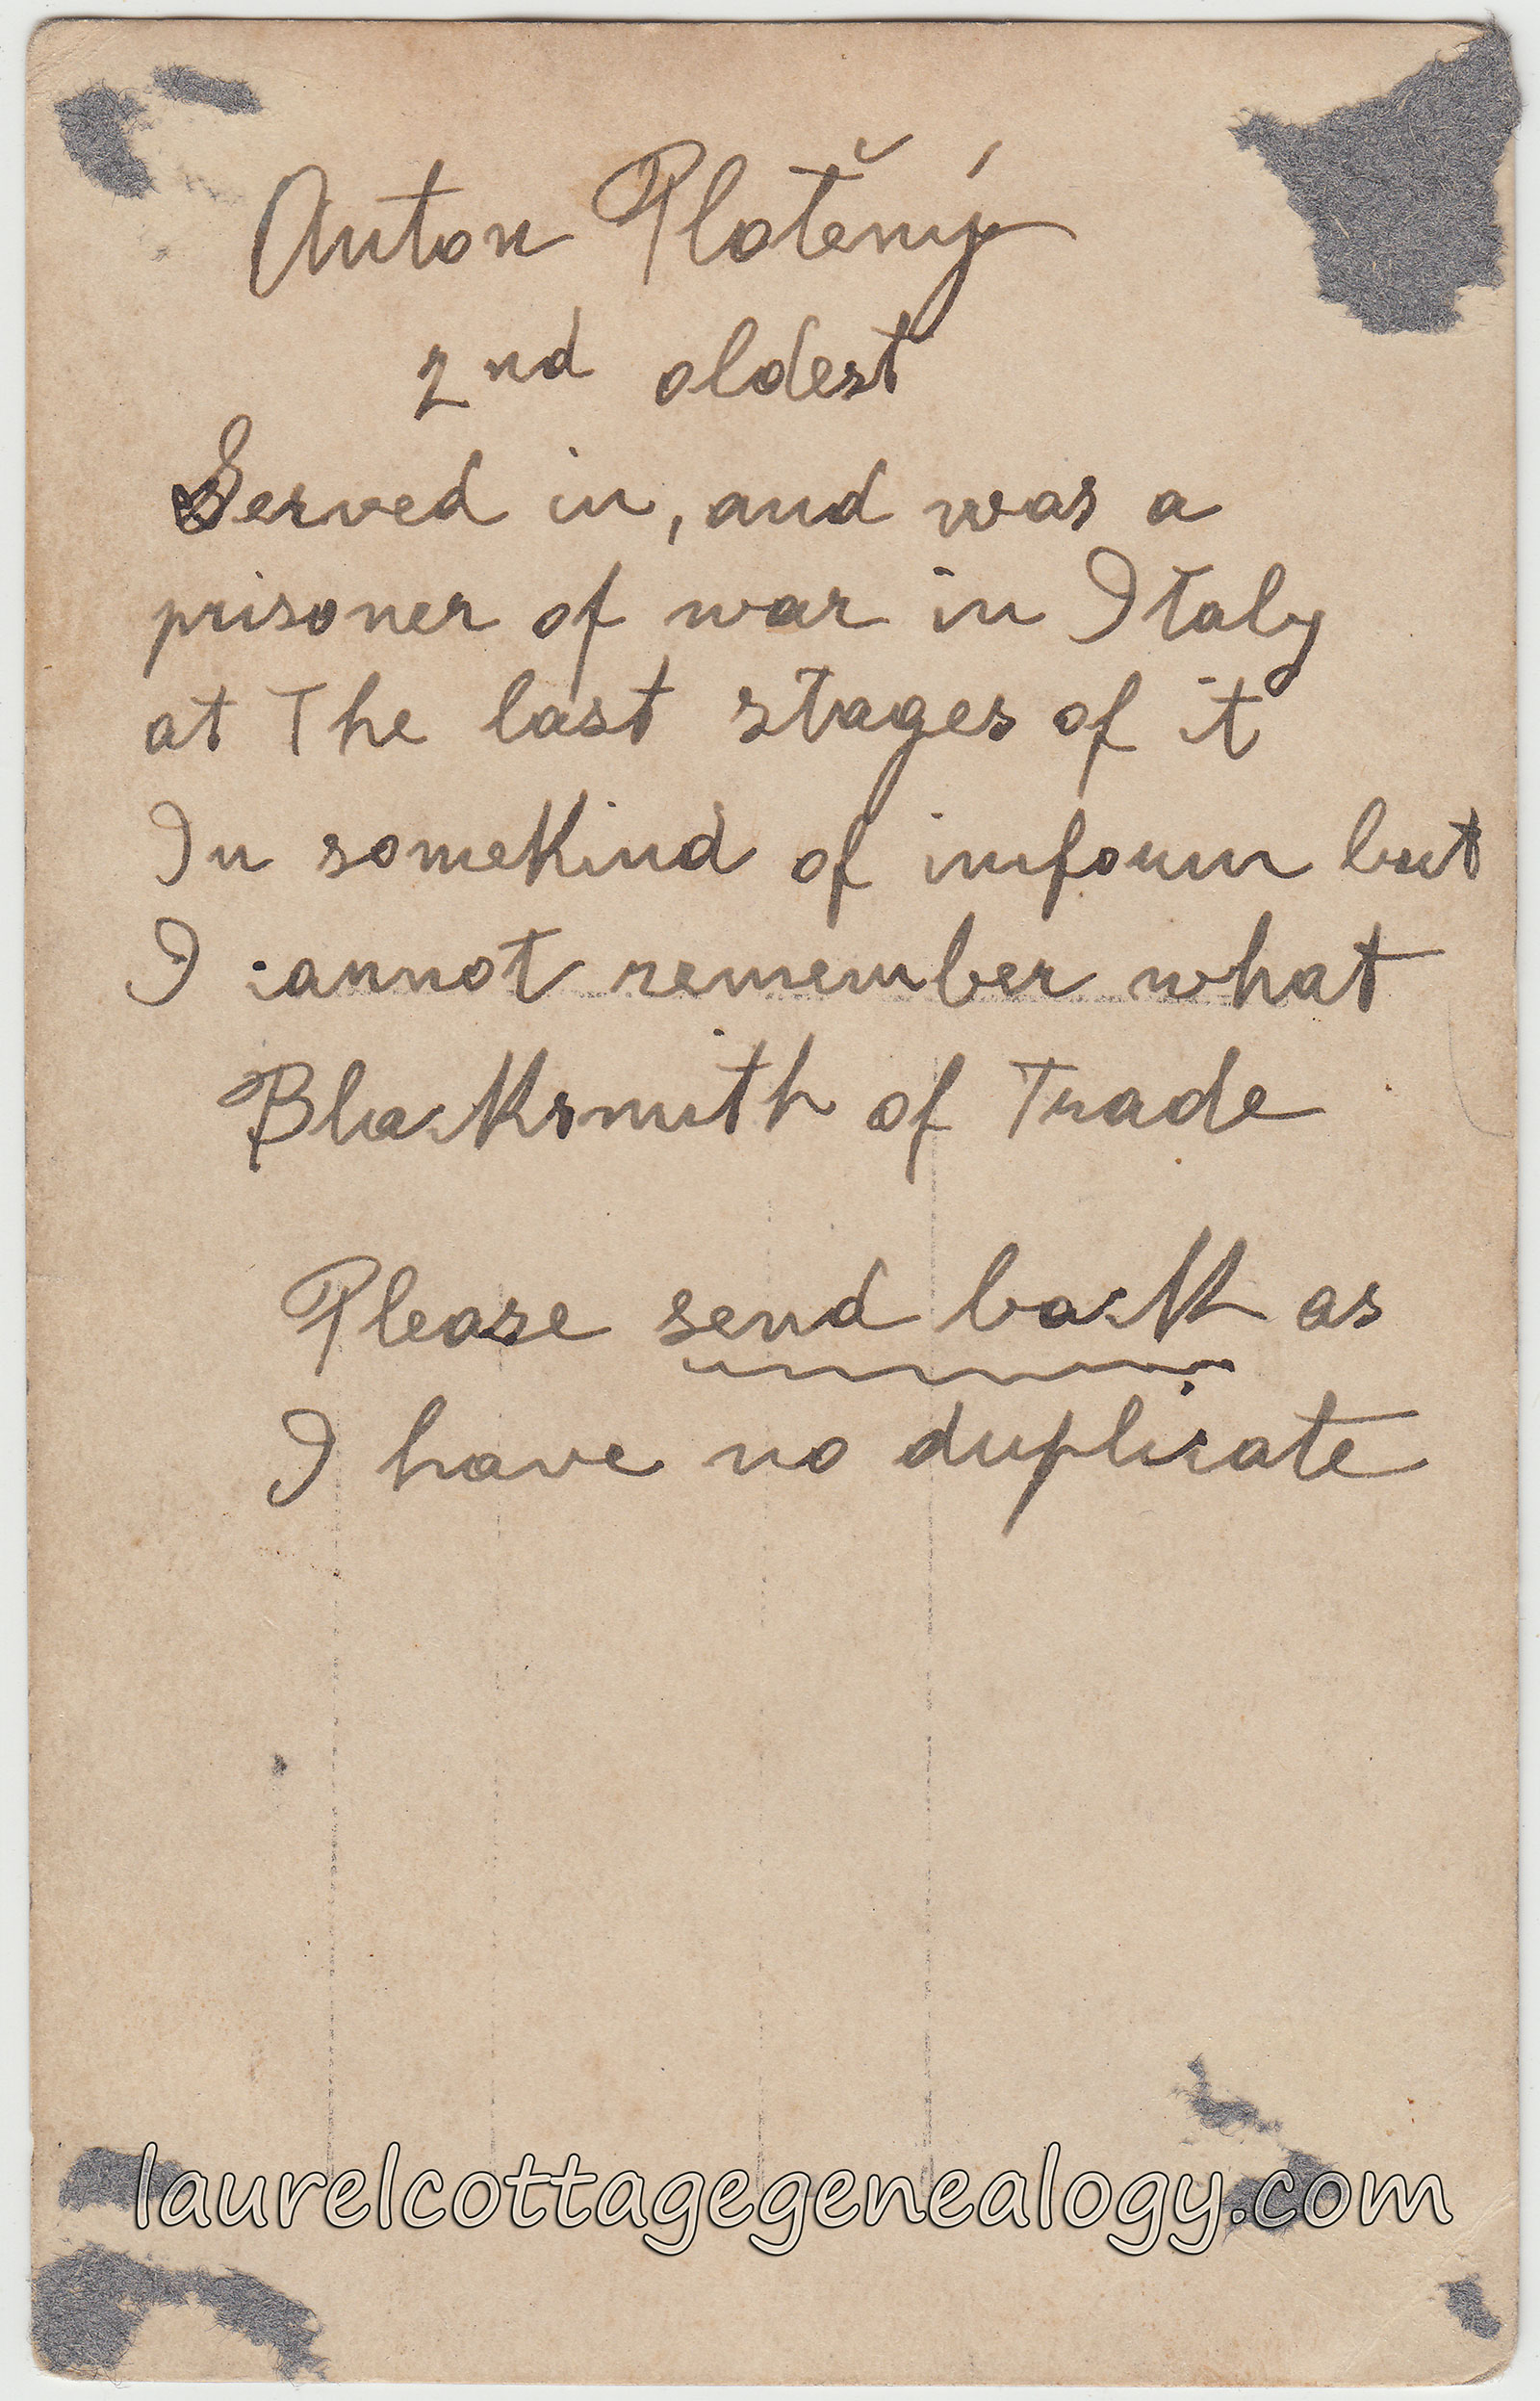 Anton Plotěný
2nd oldest
Served in, and was a
prisoner of war in Italy
at The last stages of it
In somekind of inifourm but
I cannot remember what
Blacksmith of Trade
Please send back as
I have no duplicate
laurelcottagegenealogy.com